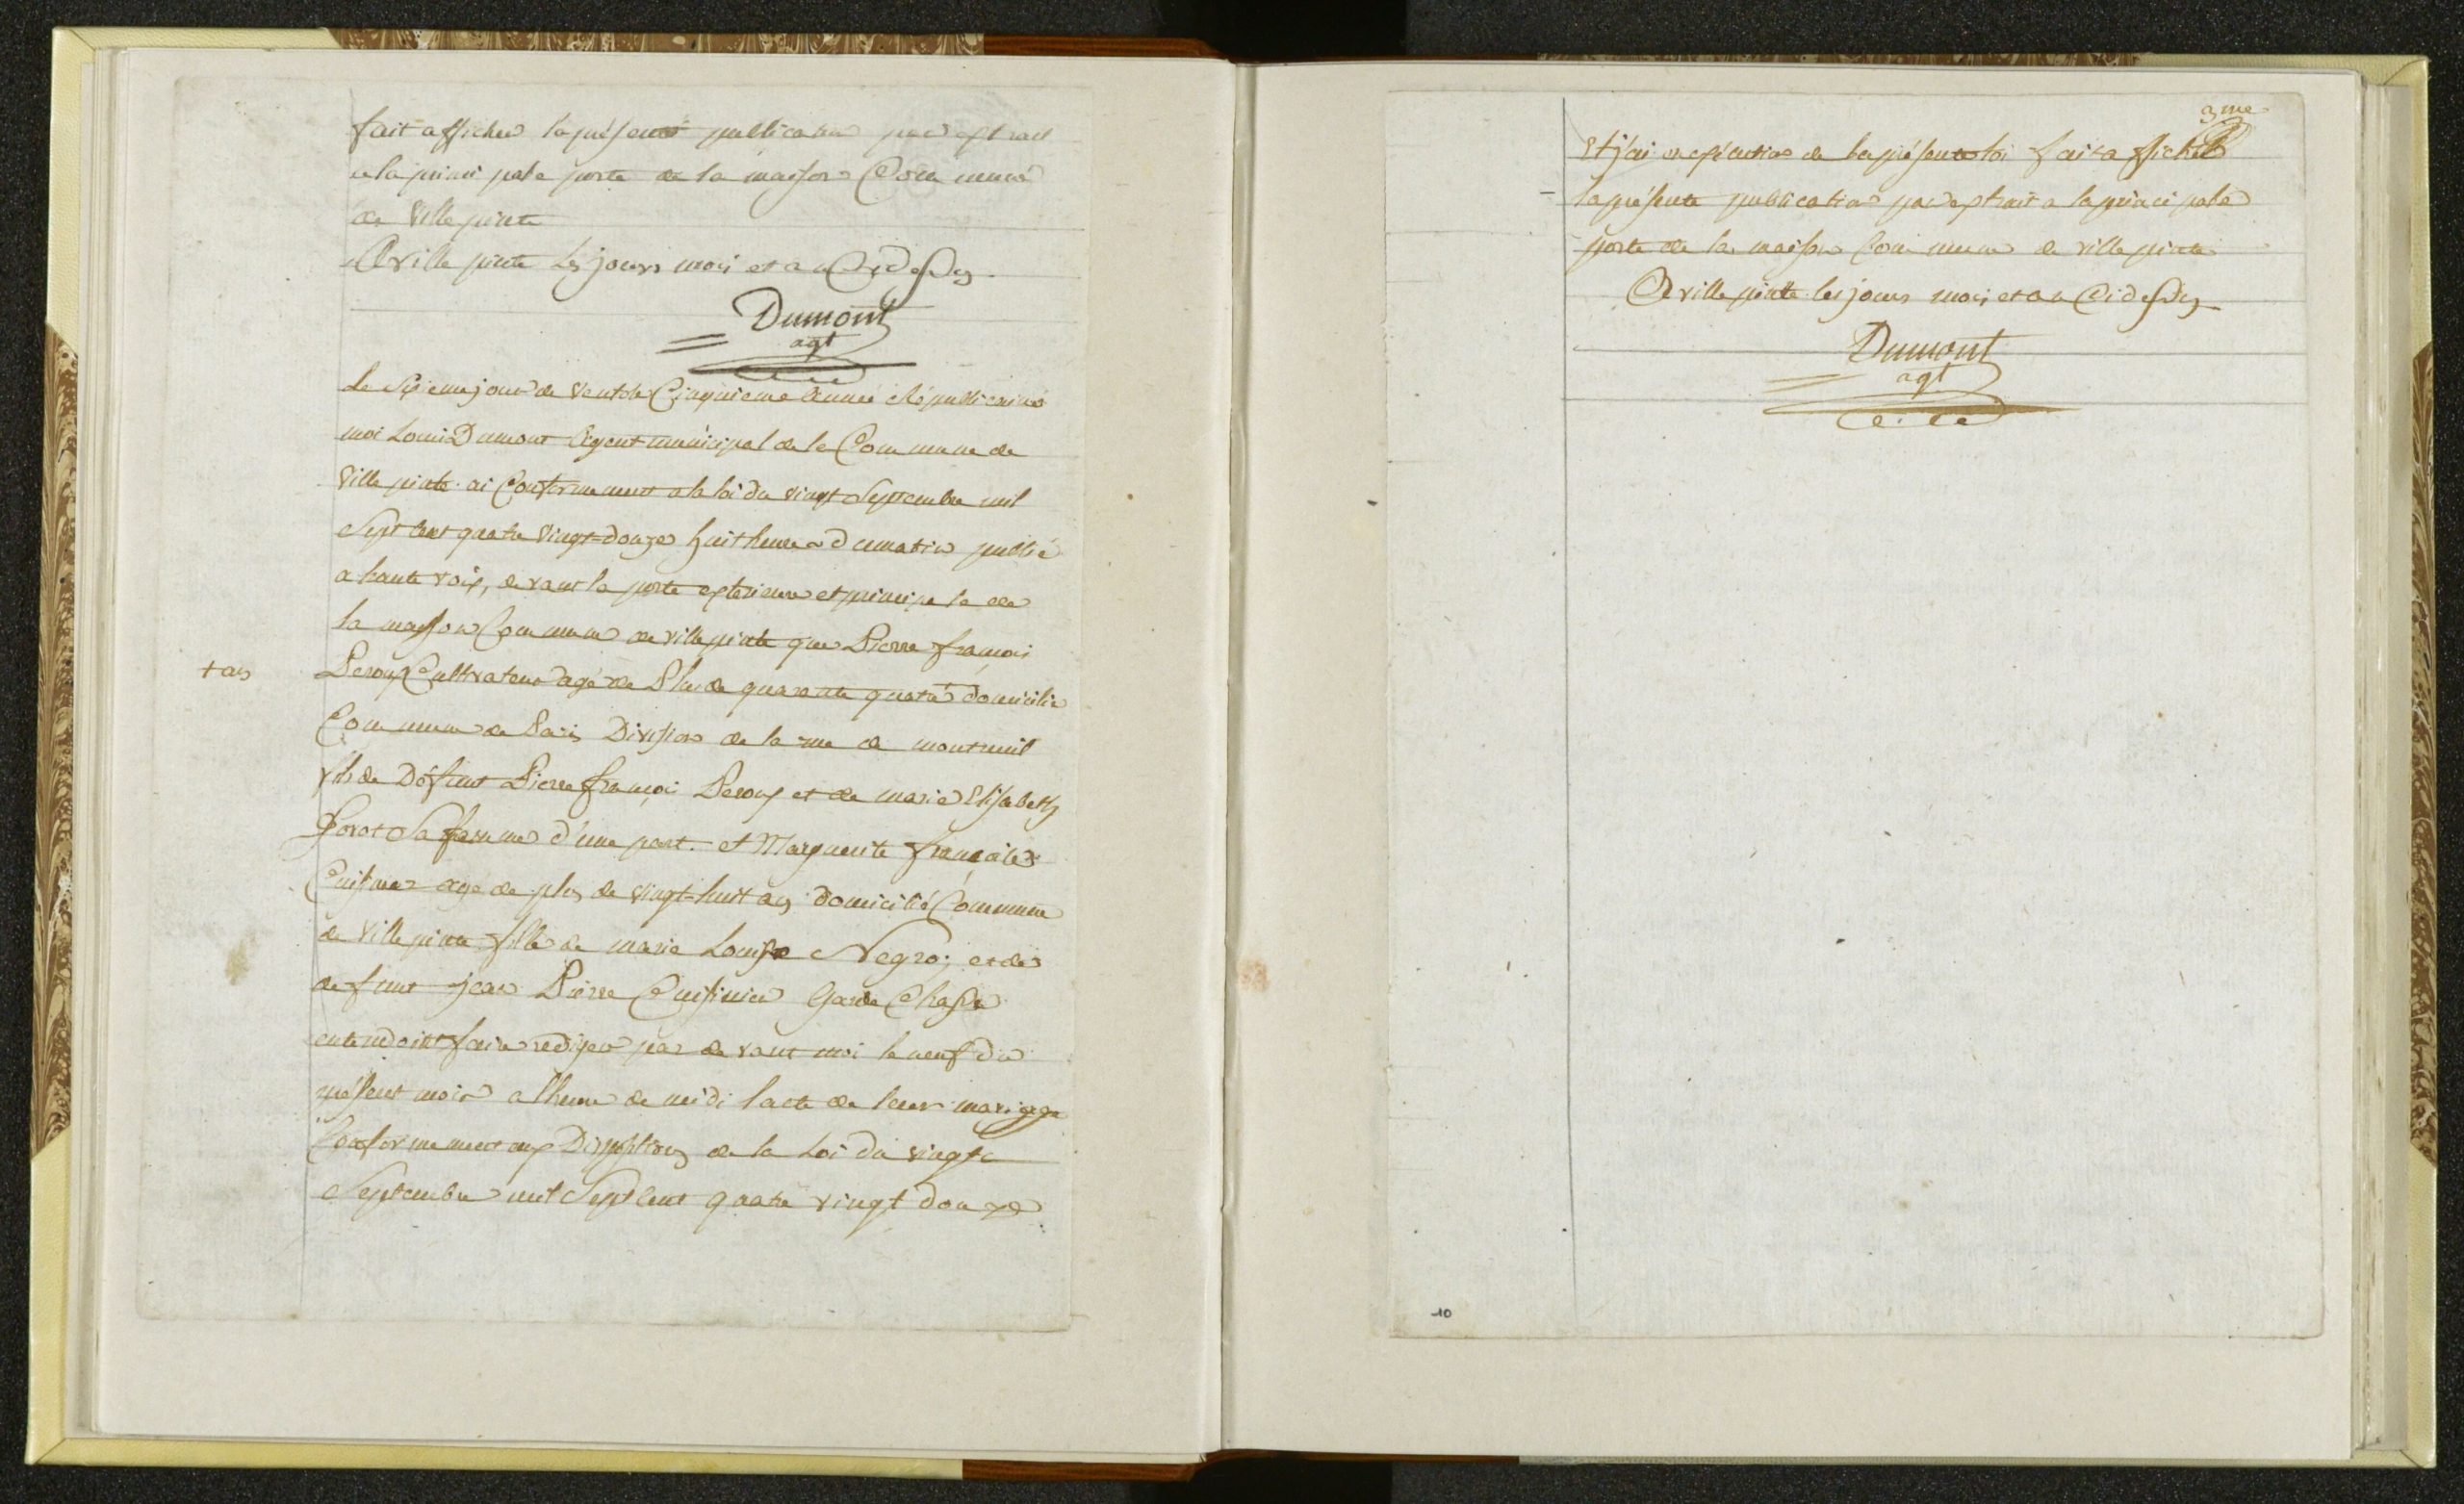 fait afficher la présente publication par extrait
a la princi pale porte de la maison Commune
de Ville pinte
A ville pinte Les jours mois et an Cidessus
Dumont
agt
Le Sixieme jour de Ventose Cinquieme Année Républicaine
moi Louis Dumont Agent municipal de la Commune de
Ville pinte ai Conformement a la loi du vingt Septembre mil
Sept Cent quatre Vingt-douze huit heures du matin publié
a haute voix, devant la porte exterieure et principale de
la maison Commune de ville pinte que Pierre françois
+ ans
Leroux Cultivateur agé de Plus de quarante quatre + domicilié
Commune de Paris Division de la rue de montreuil
fils de Défunt Pierre françois Leroux et de marie Elisabeth
Sa femme d'une part. et Marguerite françoise
Cuisinier agé de plus de vingt-huit ans domicilié Commune
de Ville pinte fille de marie Louise Negro; et de
defunt jean Pierre Cuisinier Garde Chasse
entendoint faire rediger par devant moi le neuf du
présent mois a lheure de midi lacte de leur mariage
Conformement aux Dispositions de la Loi du vingt
Septembre mil Sept Cent quatre vingt douze
3me
Et j'ai en exécution de la présente loi fait afficher
la présente publication par extrait a la princi pale
porte de la maison Commune de ville pinte
A ville pinte les jours mois et an Cidessus
Dumont
agt
10